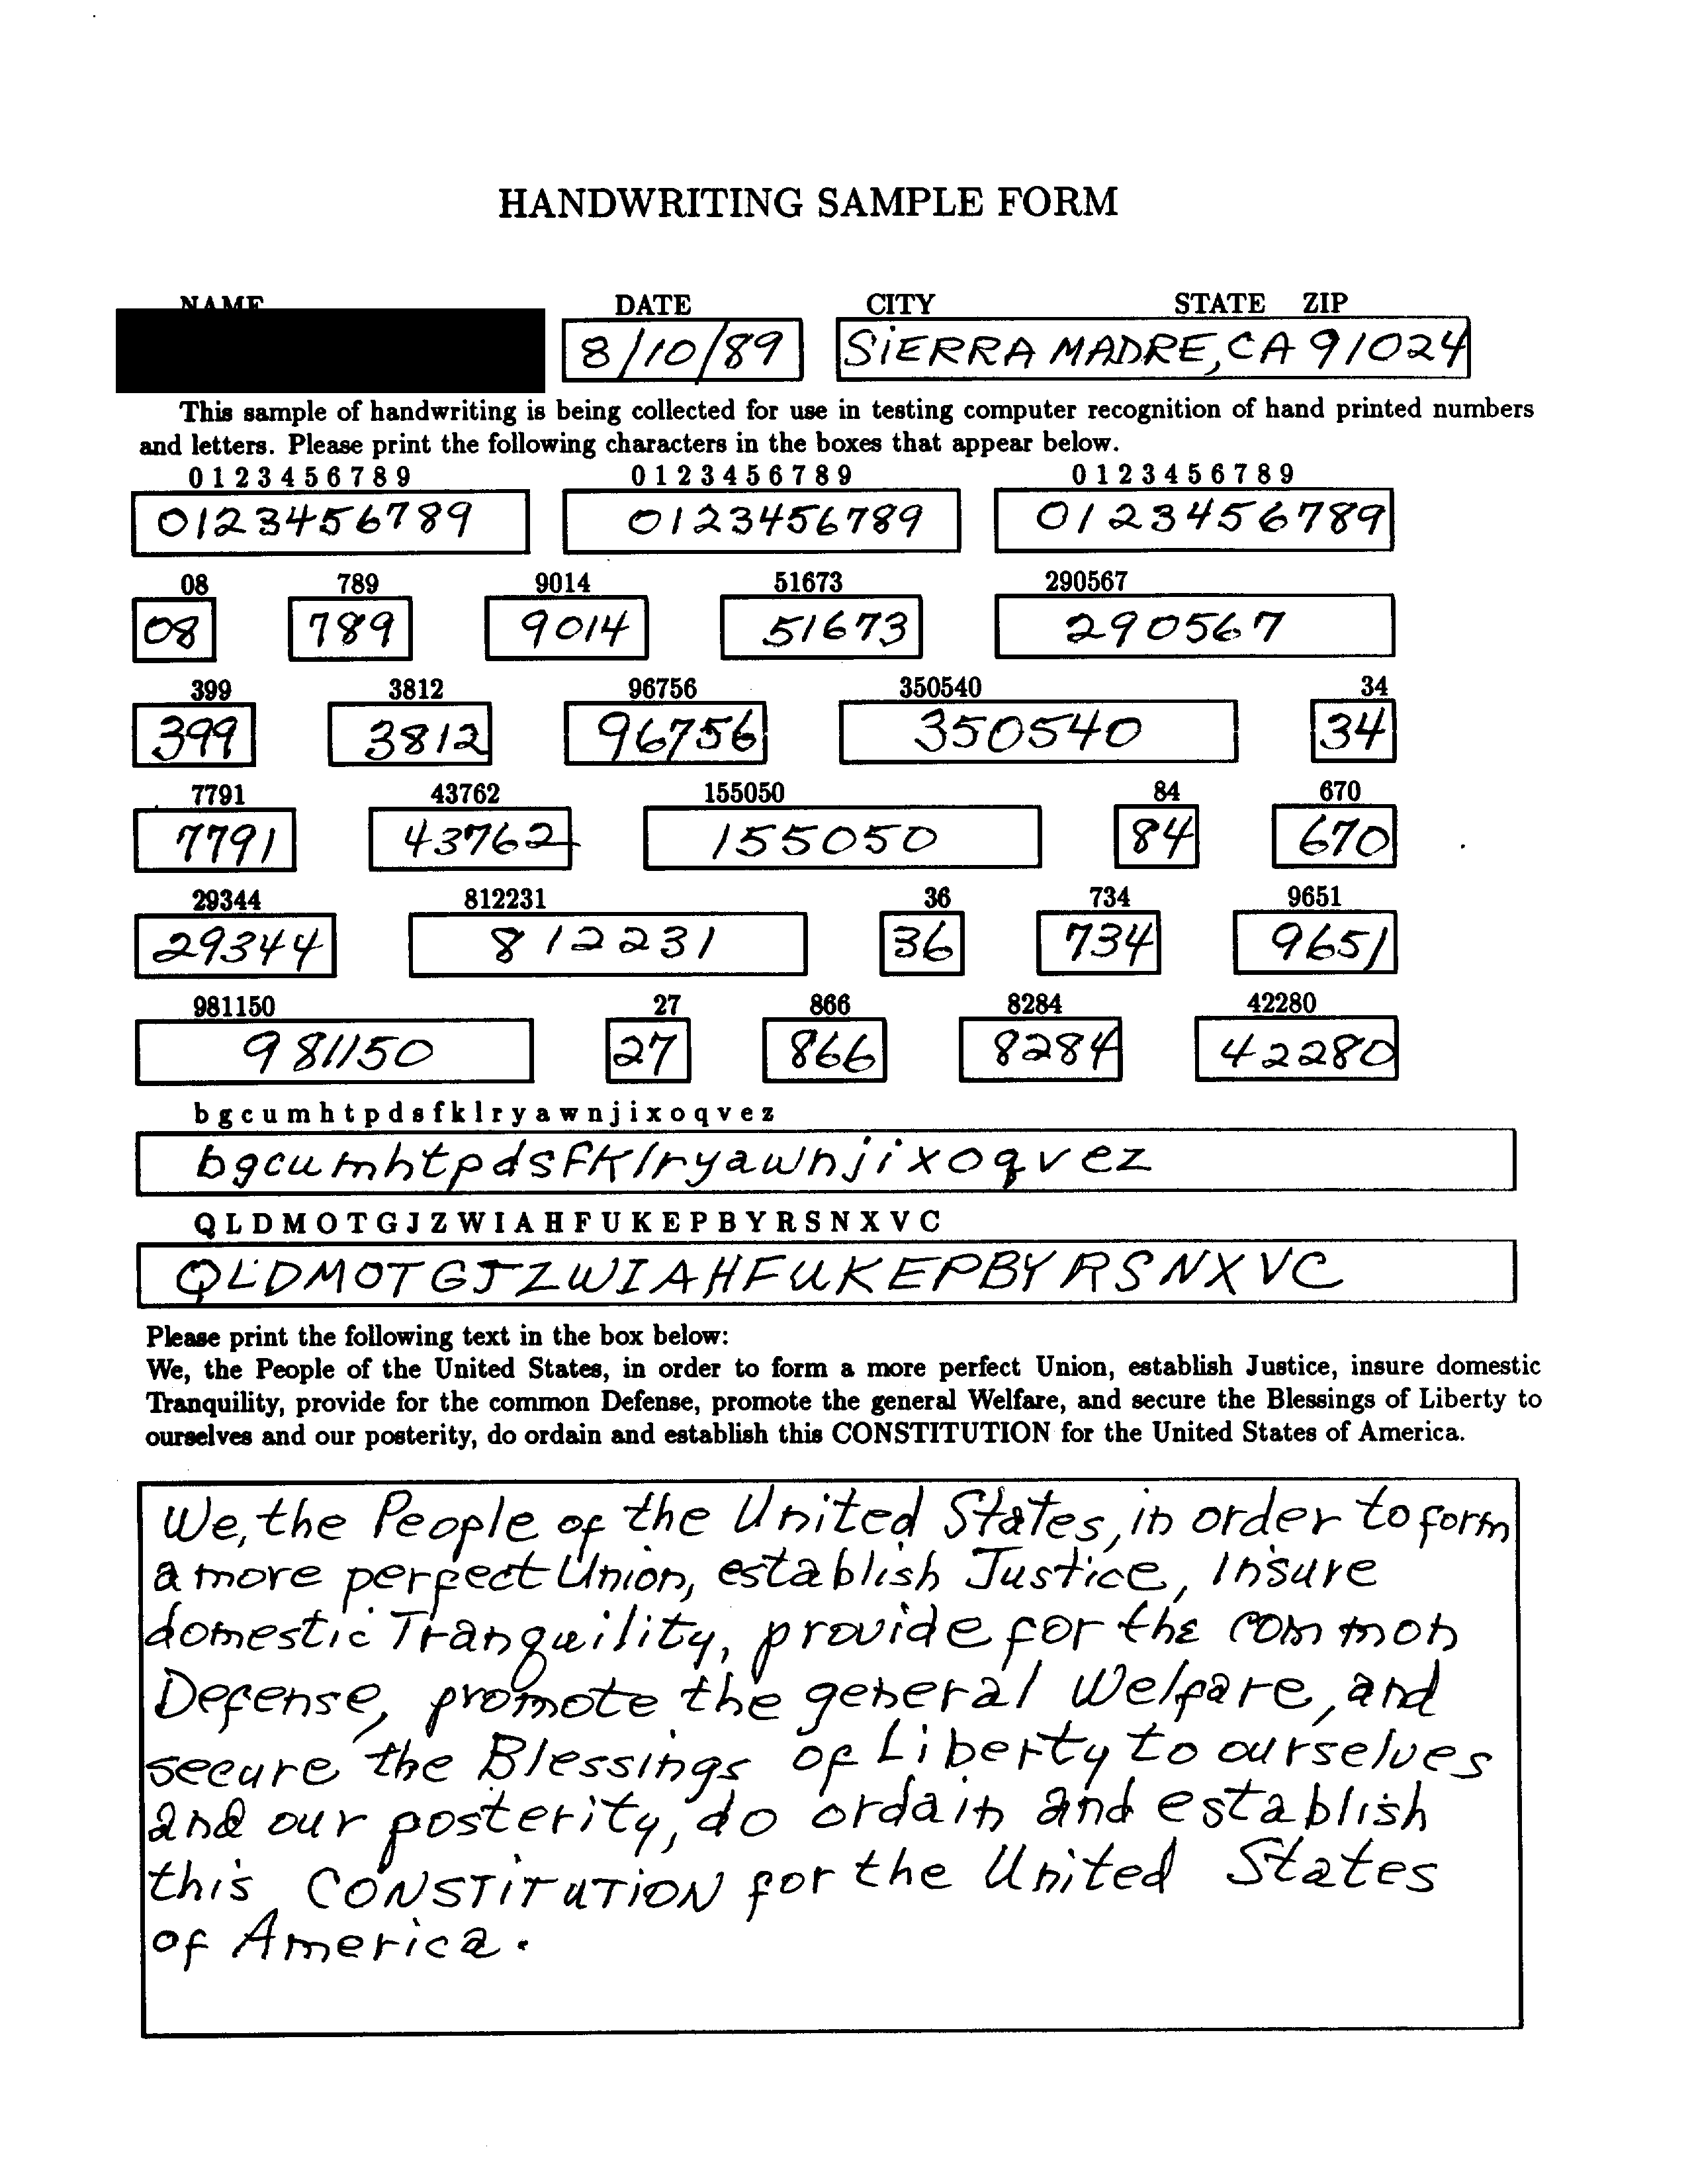 HANDWRITING SAMPLE FORM
NAME DATE CITY STATE ZIP
8/10/89 SiERRA MADRE, CA 91024
This sample of handwriting is being collected for use in testing computer recognition of hand printed numbers
and letters. Please print the following characters in the boxes that appear below.
0 1 2 3 4 5 6 7 8 9 0 1 2 3 4 5 6 7 8 9 0 1 2 3 4 5 6 7 8 9
0123456789 0123456789 0123456789
08 789 9014 51673 290567
08 789 9014 51673 290567
399 3812 96756 350540 34
399 3812 96756 350540 34
7791 43762 155050 84 670
7791 43762 155050 84 670
29344 812231 36 734 9651
29344 812231 36 734 9651
981150 27 866 8284 42280
981150 27 866 8284 42280
b g c u m h t p d s f k l r y a w n j i x o q v e z
bgcumhtpdsfklryawnjixoqvez
Q L D M O T G J Z W I A H F U K E P B Y R S N X V C
QLDMOTGJZWIAHFUKEPBYRSNXVC
Please print the following text in the box below:
We, the People of the United States, in order to form a more perfect Union, establish Justice, insure domestic
Tranquility, provide for the common Defense, promote the general Welfare, and secure the Blessings of Liberty to
ourselves and our posterity, do ordain and establish this CONSTITUTION for the United States of America.
We, the People of the United States, in order to form
a more perfect Union, establish Justice, insure
domestic Tranquility, provide for the common
Defense, promote the general Welfare, and
secure the Blessings of Liberty to ourselves
and our posterity, do ordain and establish
this CONSTITUTION for the United States
of America.